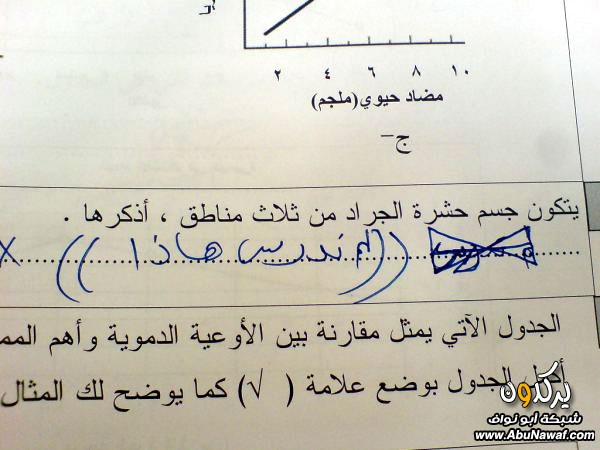 ٢ ٤ ٦ ٨ ١٠
مضاد حيوي(ملجم)
ج-
يتكون جسم حشرة الجراد من ثلاث مناطق ، أذكرها .
((لم ندرس هاذا)) X
الجدول الآتي يمثل مقارنة بين الأوعية الدموية وأهم
أكمل الجدول بوضع علامة ( √ ) كما يوضح لك المثال
يركدوه
شبكة أبو نواف
www.AbuNawaf.com